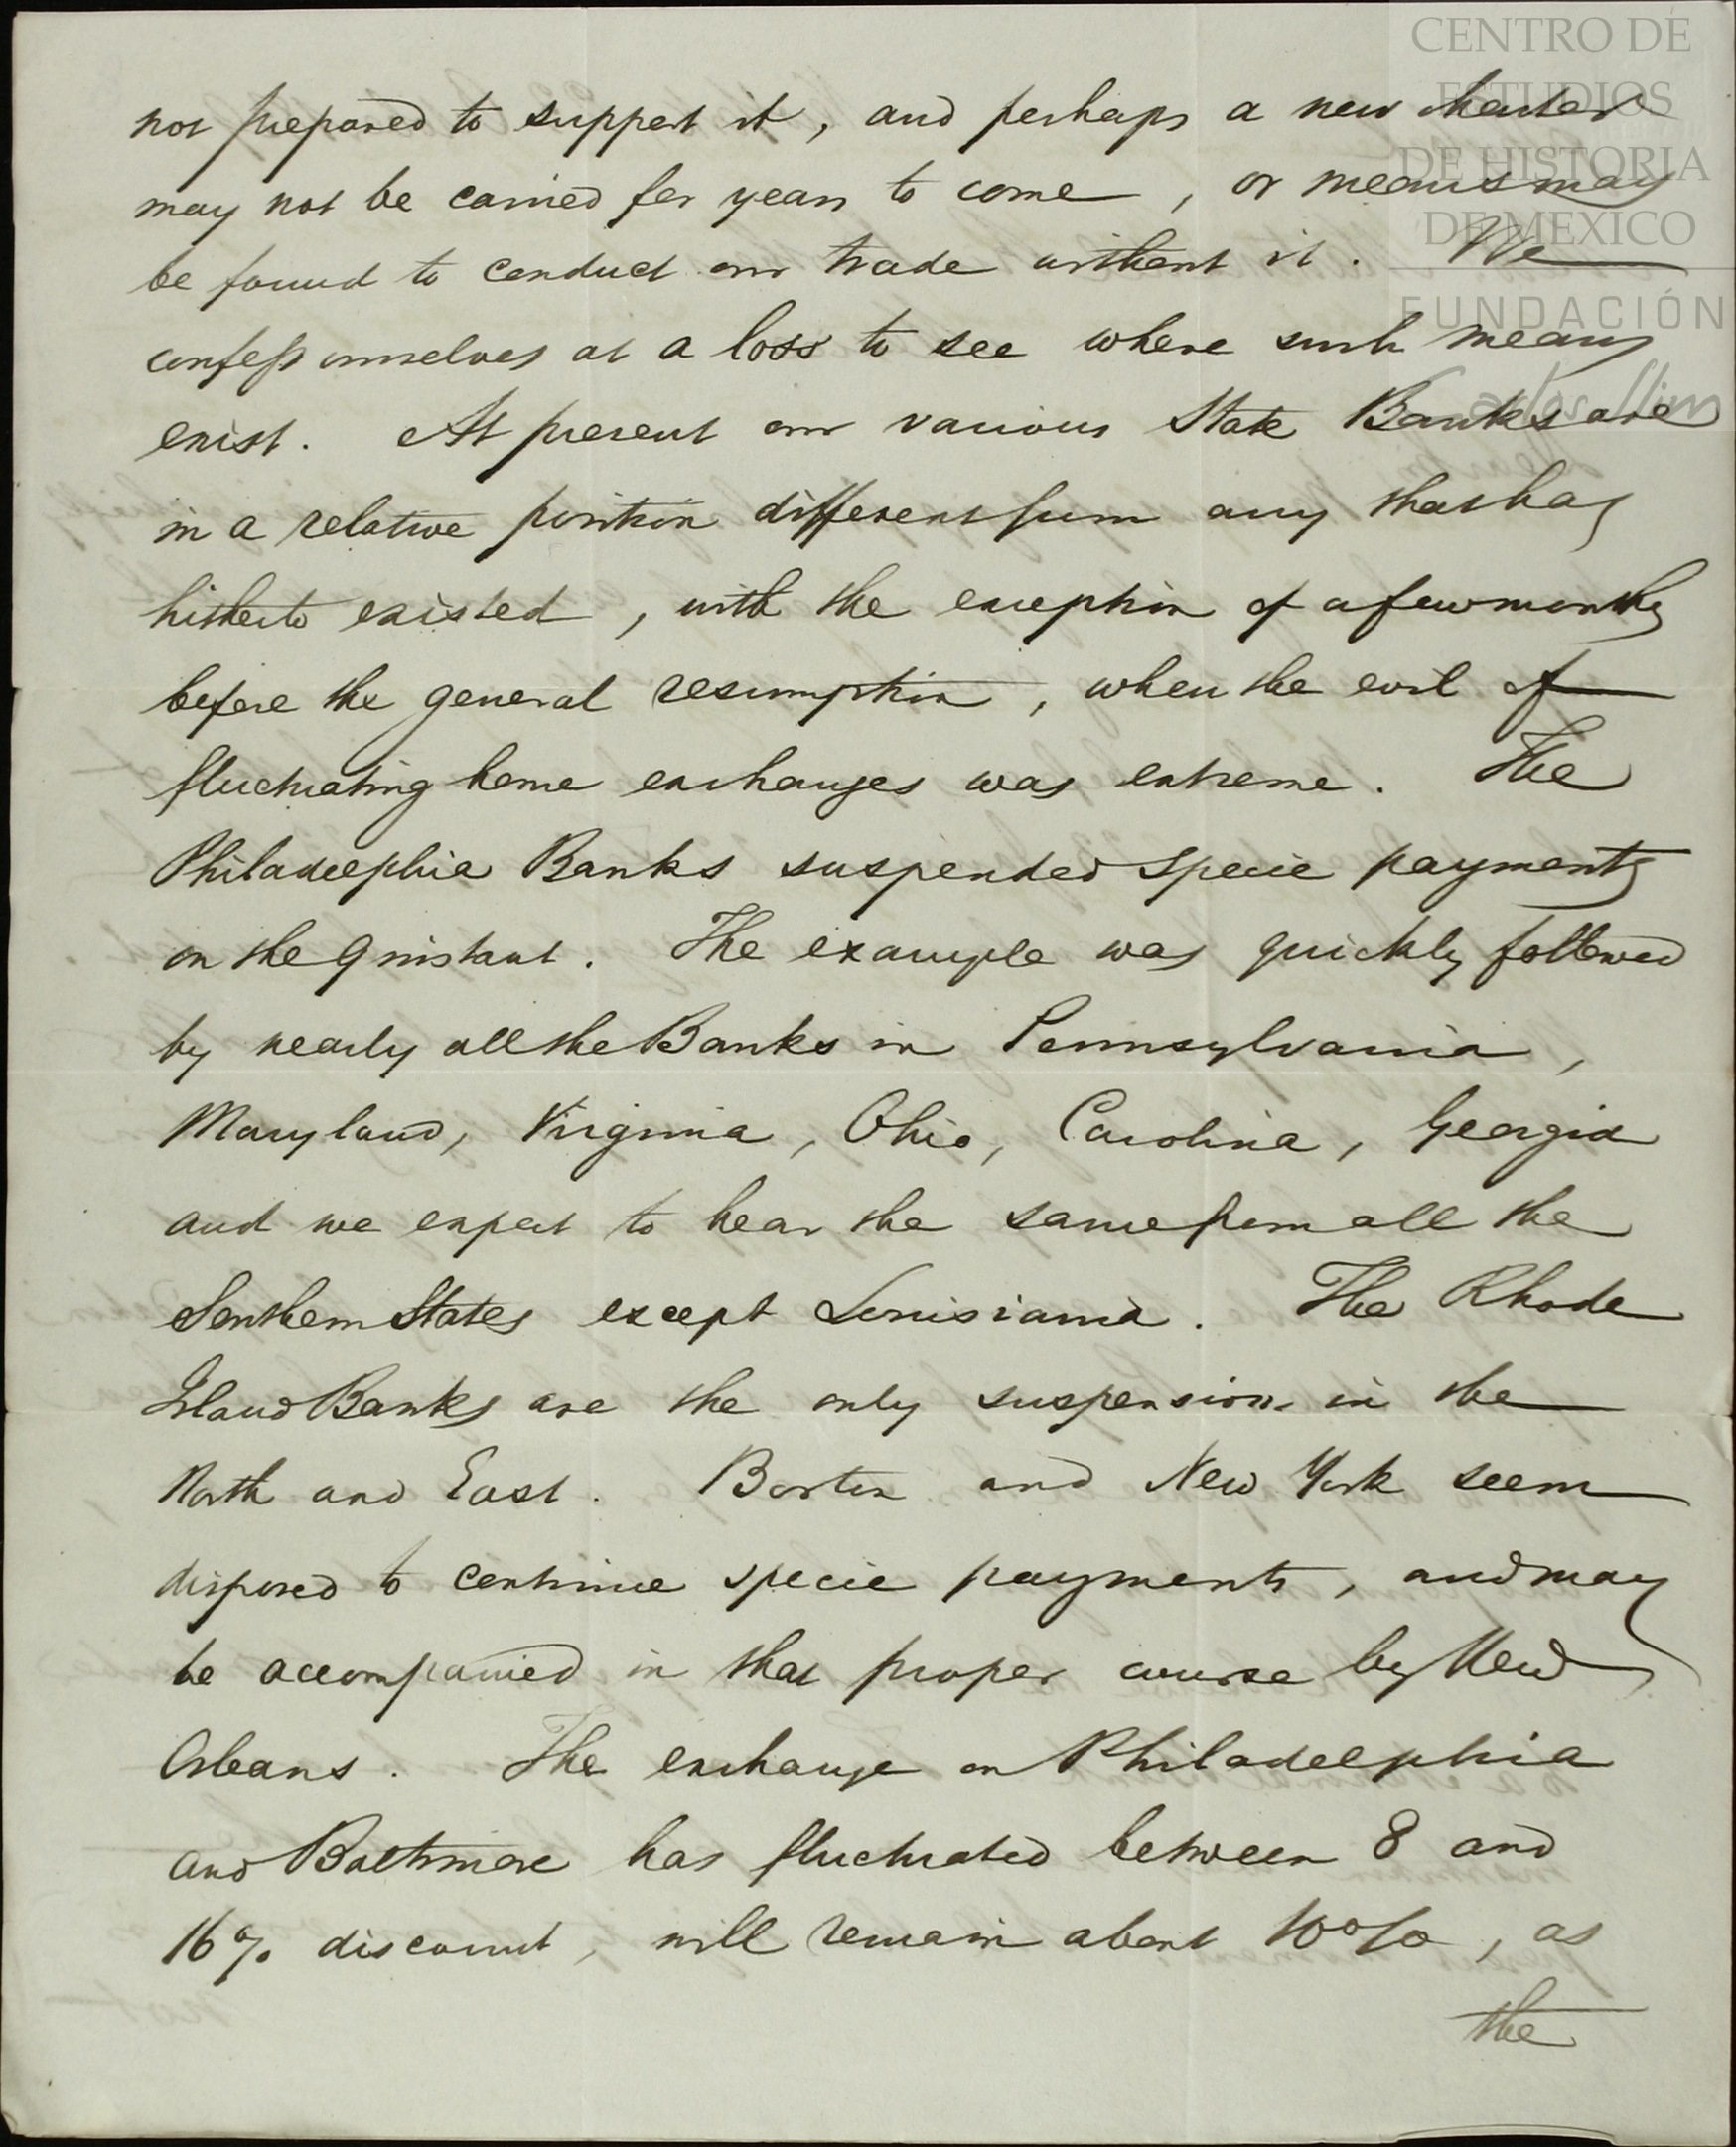 CENTRO DE
ESTUDIOS
DE HISTORIA
DE MEXICO
FUNDACIÓN
Carlos Slim
not prepared to support it, and perhaps a new charter
may not be carried for years to come, or means may
be found to conduct our trade without it. We
confess ourselves at a loss to see where such means
exist. At present our various State Banks are
in a relative position different from any that has
hitherto existed, with the exception of a few months
before the general resumption, when the evil of
fluctuating home exchanges was extreme. The
Philadelphia Banks suspended specie payments
on the 9 instant. The example was quickly followed
by nearly all the Banks in Pennsylvania,
Maryland, Virginia, Ohio, Carolina, Georgia
and we expect to hear the same from all the
Southern States except Louisiana. The Rhode
Island Banks are the only suspensions in the
North and East. Boston and New York seem
disposed to continue specie payments, and may
be accompanied in that proper course by New
Orleans. The exchange on Philadelphia
and Baltimore has fluctuated between 8 and
16% discount, will remain about 10%, as
the